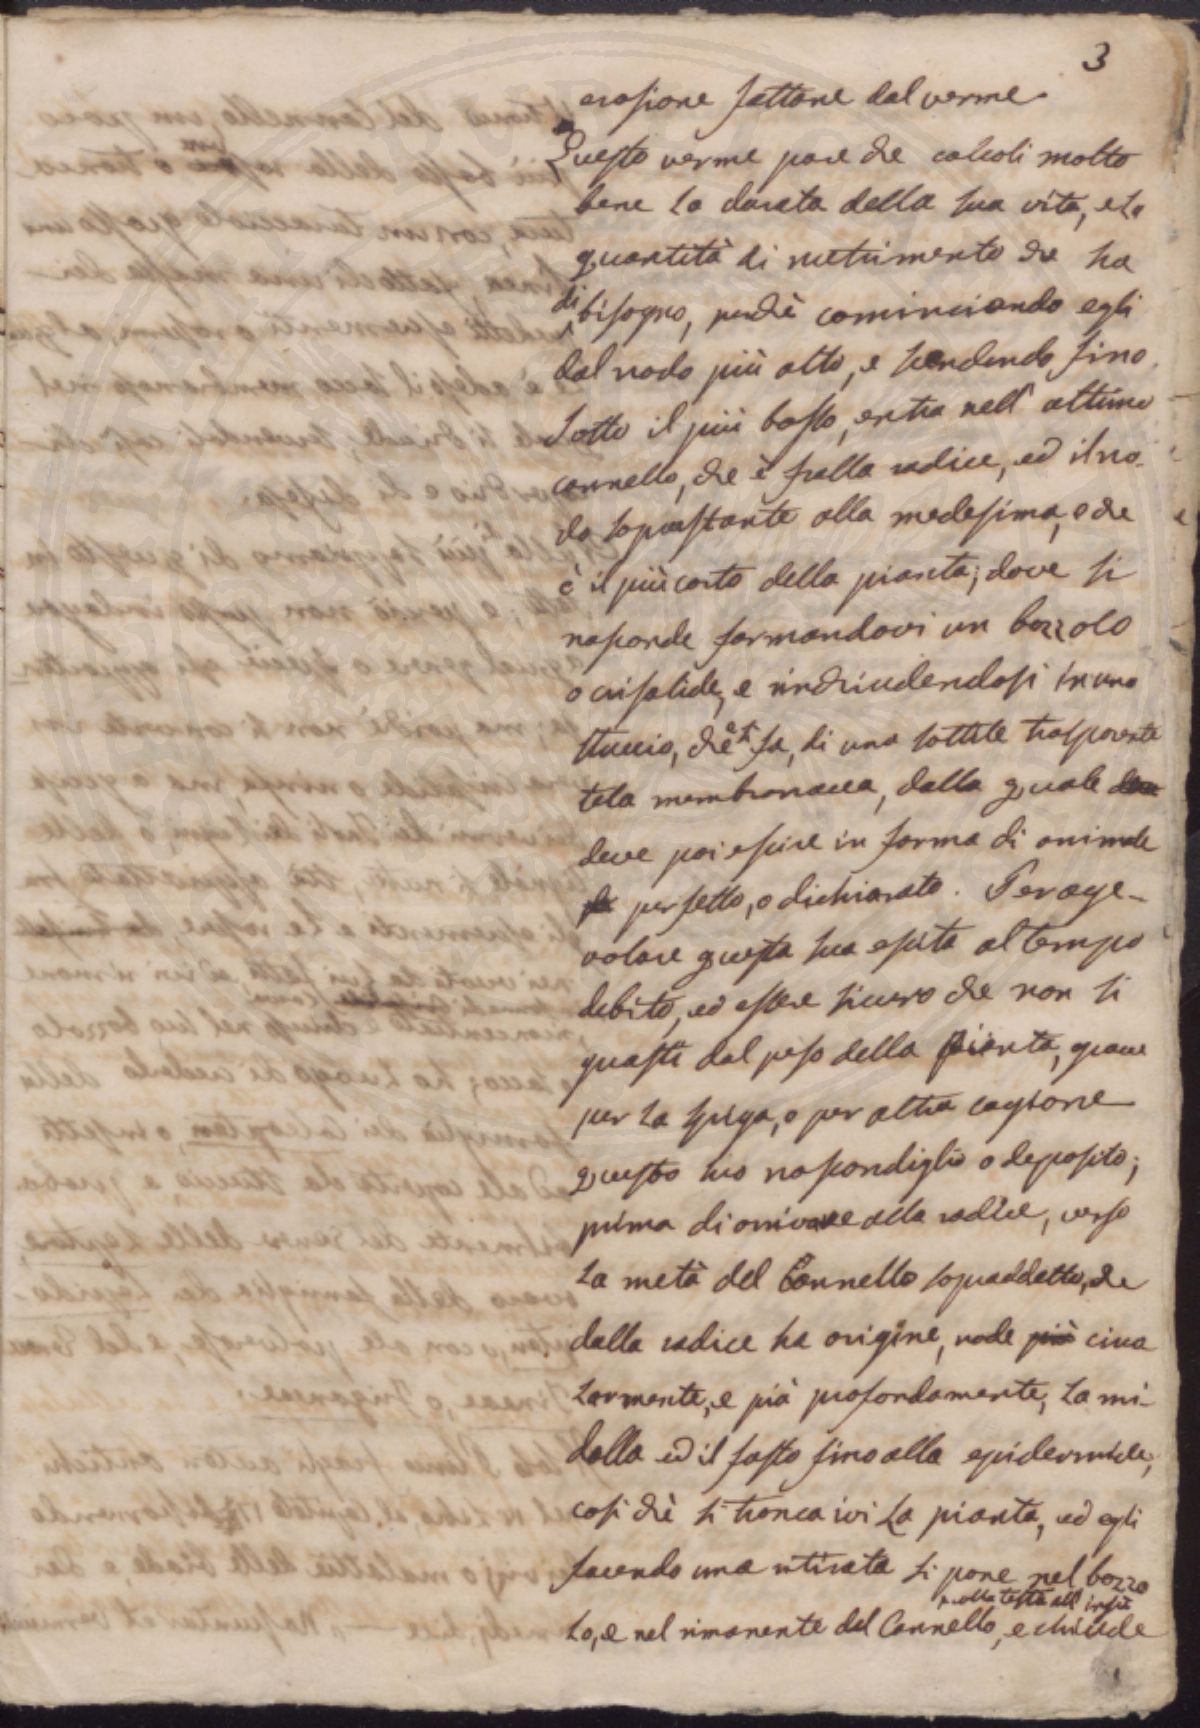 3
erosione fattane dal verme
Questo verme pare che calcoli molto
bene la durata della sua vita, e la
quantità di nutrimento che ha
di bisogno, perchè cominciando egli
dal nodo più alto, e scendendo fino
sotto il più basso, entra nell' ultimo
cannello, che è fralla radice, ed il no-
do soprastante alla medesima, e che
è il più corto della pianta; dove si
nasconde formandovi un bozzolo
o crisalide, e rinchiudendosi in uno
stuccio, che si fa, di una sottile trasparente
tela membranacea, dalla quale
deve poi escire in forma di animale
perfetto, o dichiarato. Per age-
volare questa sua escita al tempo
debito, ed essere sicuro che non si
guasti dal peso della pianta, grave
per la spiga, o per altra cagione
questo suo nascondiglio o deposito;
prima di arrivare alla radice, verso
la metà del Cannello sopraddetto, che
dalla radice ha origine, rode più circo
larmente, e più profondamente, la mi-
dolla ed il fusto fino alla epidermide,
così chè si tronca ivi la pianta, ed egli
facendo una ritirata si pone nel bozzo
colla testa all' insù
lo, e nel rimanente del Cannello, e chiude